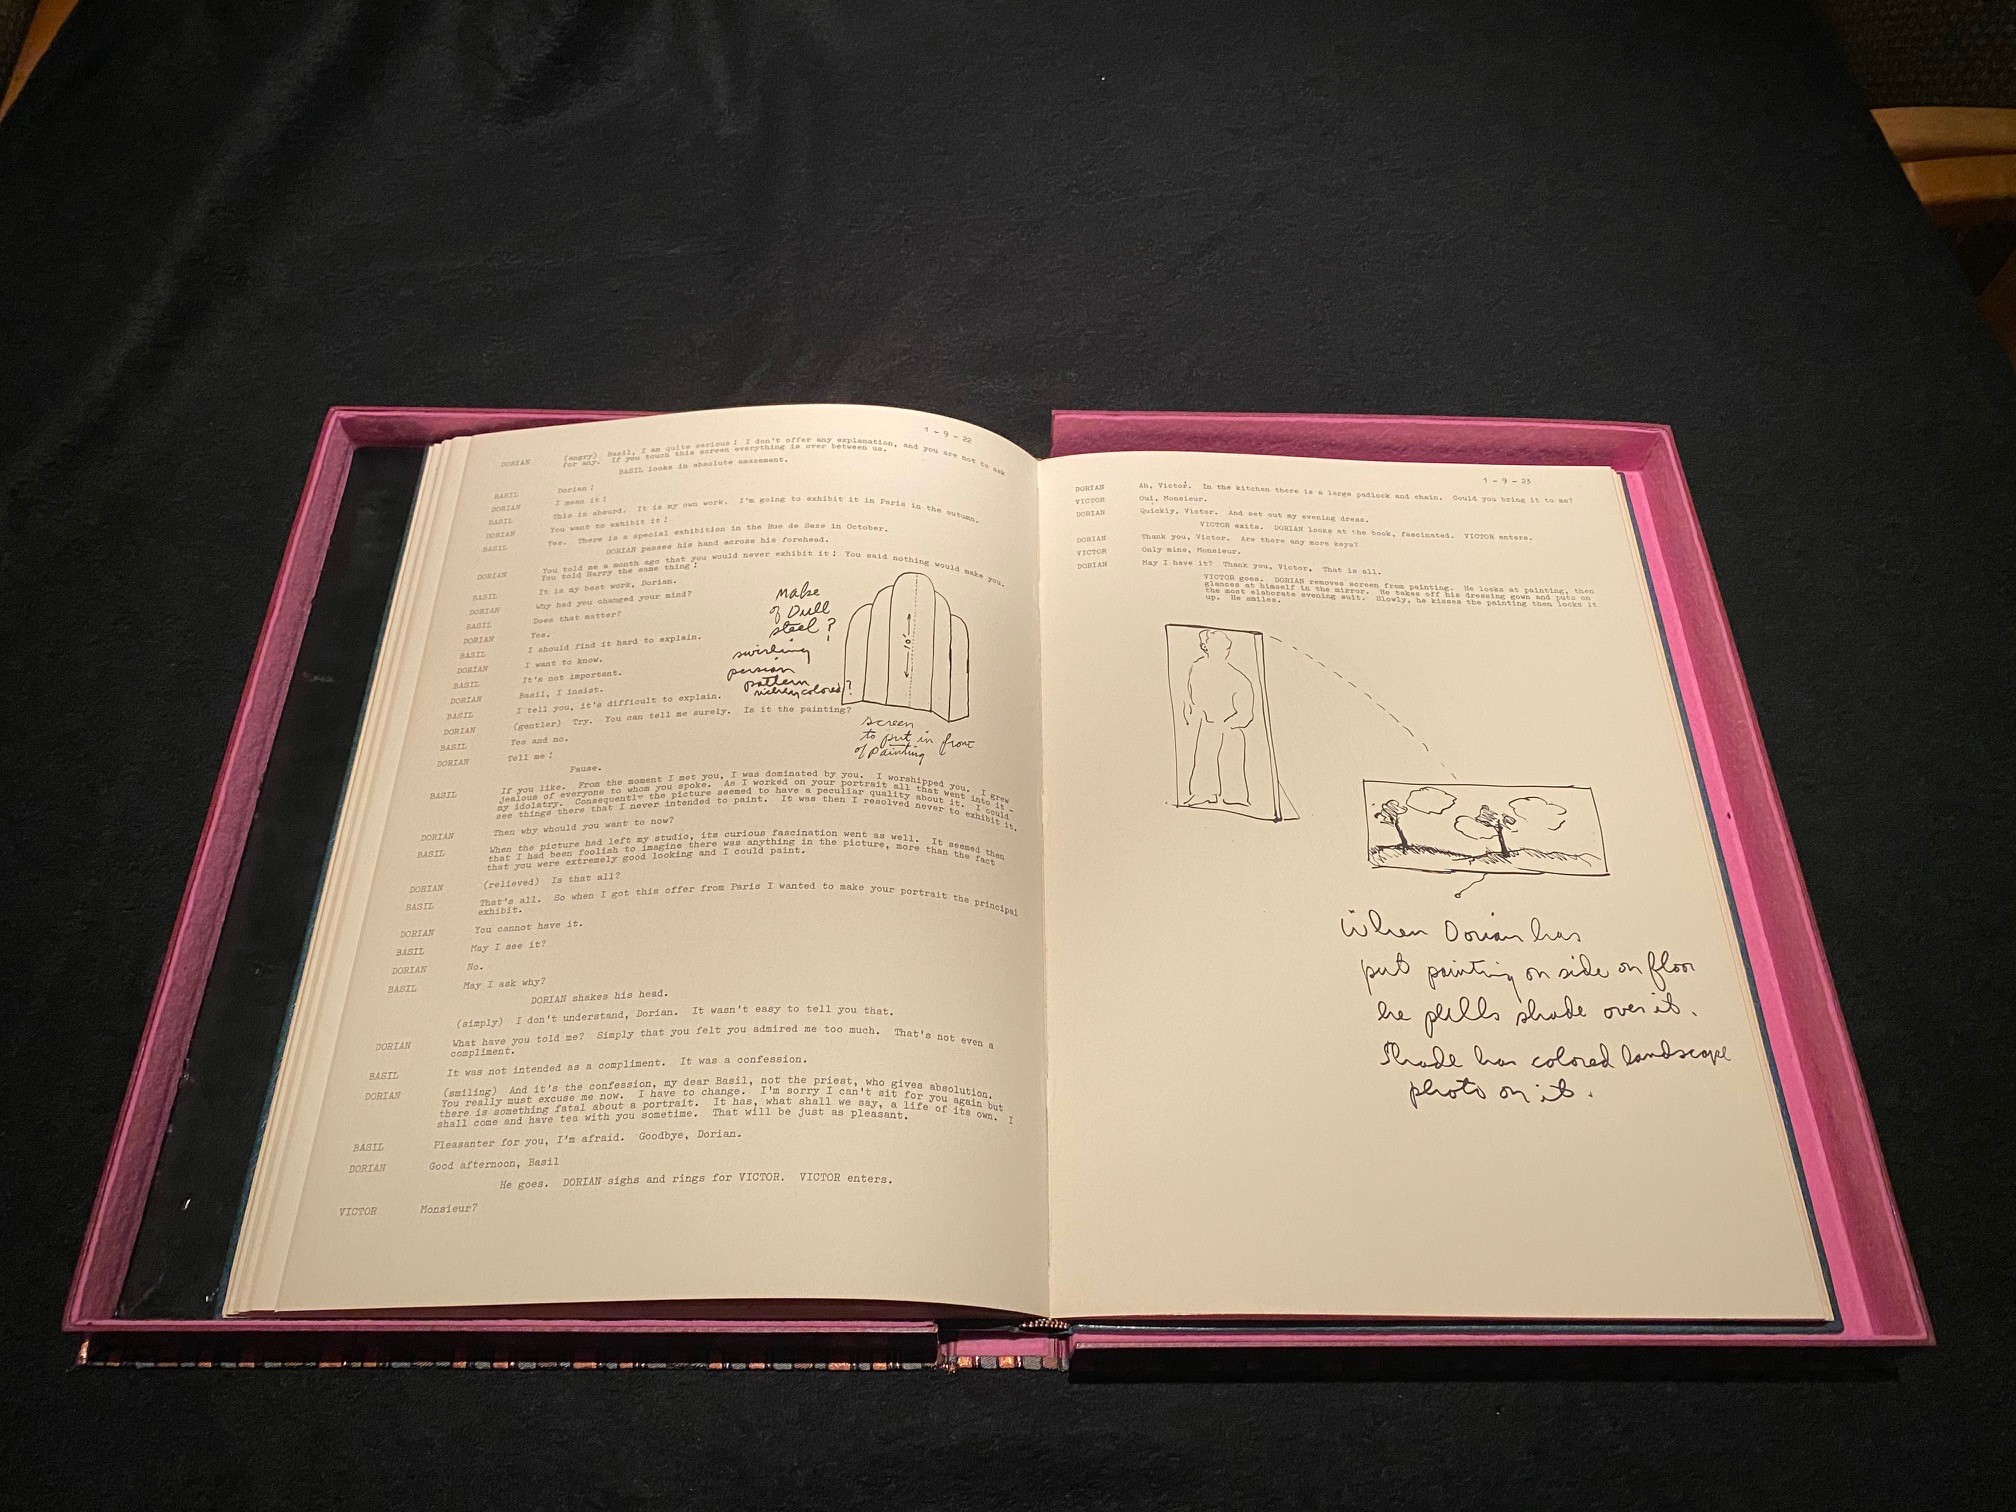 1 - 9 - 22
DORIAN (angry) Basil, I am quite serious! I don't offer any explanation, and you are not to ask
for any. If you touch this screen everything is over between us.
BASIL looks in absolute amazement.
BASIL Dorian!
DORIAN I mean it!
BASIL This is absurd. It is my own work. I'm going to exhibit it in Paris in the autumn.
DORIAN You want to exhibit it!
BASIL Yes. There is a special exhibition in the Rue de Seze in October.
DORIAN passes his hand across his forehead.
DORIAN You told me a month ago that you would never exhibit it! You said nothing would make you.
You told Harry the same thing!
BASIL It is my best work, Dorian.
DORIAN Why had you changed your mind?
BASIL Does that matter?
DORIAN Yes.
BASIL I should find it hard to explain.
DORIAN I want to know.
BASIL It's not important.
DORIAN Basil, I insist.
BASIL I tell you, it's difficult to explain.
DORIAN (gentler) Try. You can tell me surely. Is it the painting?
BASIL Yes and no.
DORIAN Tell me!
Pause.
BASIL If you like. From the moment I met you, I was dominated by you. I worshipped you. I grew
jealous of everyone to whom you spoke. As I worked on your portrait all that went into it -
my idolatry. Consequently the picture seemed to have a peculiar quality about it. I could
see things there that I never intended to paint. It was then I resolved never to exhibit it.
DORIAN Then why whould you want to now?
BASIL When the picture had left my studio, its curious fascination went as well. It seemed then
that I had been foolish to imagine there was anything in the picture, more than the fact
that you were extremely good looking and I could paint.
DORIAN (relieved) Is that all?
BASIL That's all. So when I got this offer from Paris I wanted to make your portrait the principal
exhibit.
DORIAN You cannot have it.
BASIL May I see it?
DORIAN No.
BASIL May I ask why?
DORIAN shakes his head.
(simply) I don't understand, Dorian. It wasn't easy to tell you that.
DORIAN What have you told me? Simply that you felt you admired me too much. That's not even a
compliment.
BASIL It was not intended as a compliment. It was a confession.
DORIAN (smiling) And it's the confession, my dear Basil, not the priest, who gives absolution.
You really must excuse me now. I have to change. I'm sorry I can't sit for you again but
there is something fatal about a portrait. It has, what shall we say, a life of its own. I
shall come and have tea with you sometime. That will be just as pleasant.
BASIL Pleasanter for you, I'm afraid. Goodbye, Dorian.
DORIAN Good afternoon, Basil
He goes. DORIAN sighs and rings for VICTOR. VICTOR enters.
VICTOR Monsieur?
Make
of Dull
steel?
swirling
persian
pattern
colored?
10'
screen
to put in front
of painting
1 - 9 - 23
DORIAN Ah, Victor. In the kitchen there is a large padlock and chain. Could you bring it to me?
VICTOR Oui, Monsieur.
DORIAN Quickly, Victor. And set out my evening dress.
VICTOR exits. DORIAN looks at the book, fascinated. VICTOR enters.
DORIAN Thank you, Victor. Are there any more keys?
VICTOR Only mine, Monsieur.
DORIAN May I have it? Thank you, Victor. That is all.
VICTOR goes. DORIAN removes screen from painting. He looks at painting, then
glances at himself in the mirror. He takes off his dressing gown and puts on
the most elaborate evening suit. Slowly, he kisses the painting then locks it
up. He smiles.
When Dorian has
put painting on side on floor
he pulls shade over it.
Shade has colored landscape
photo on it.